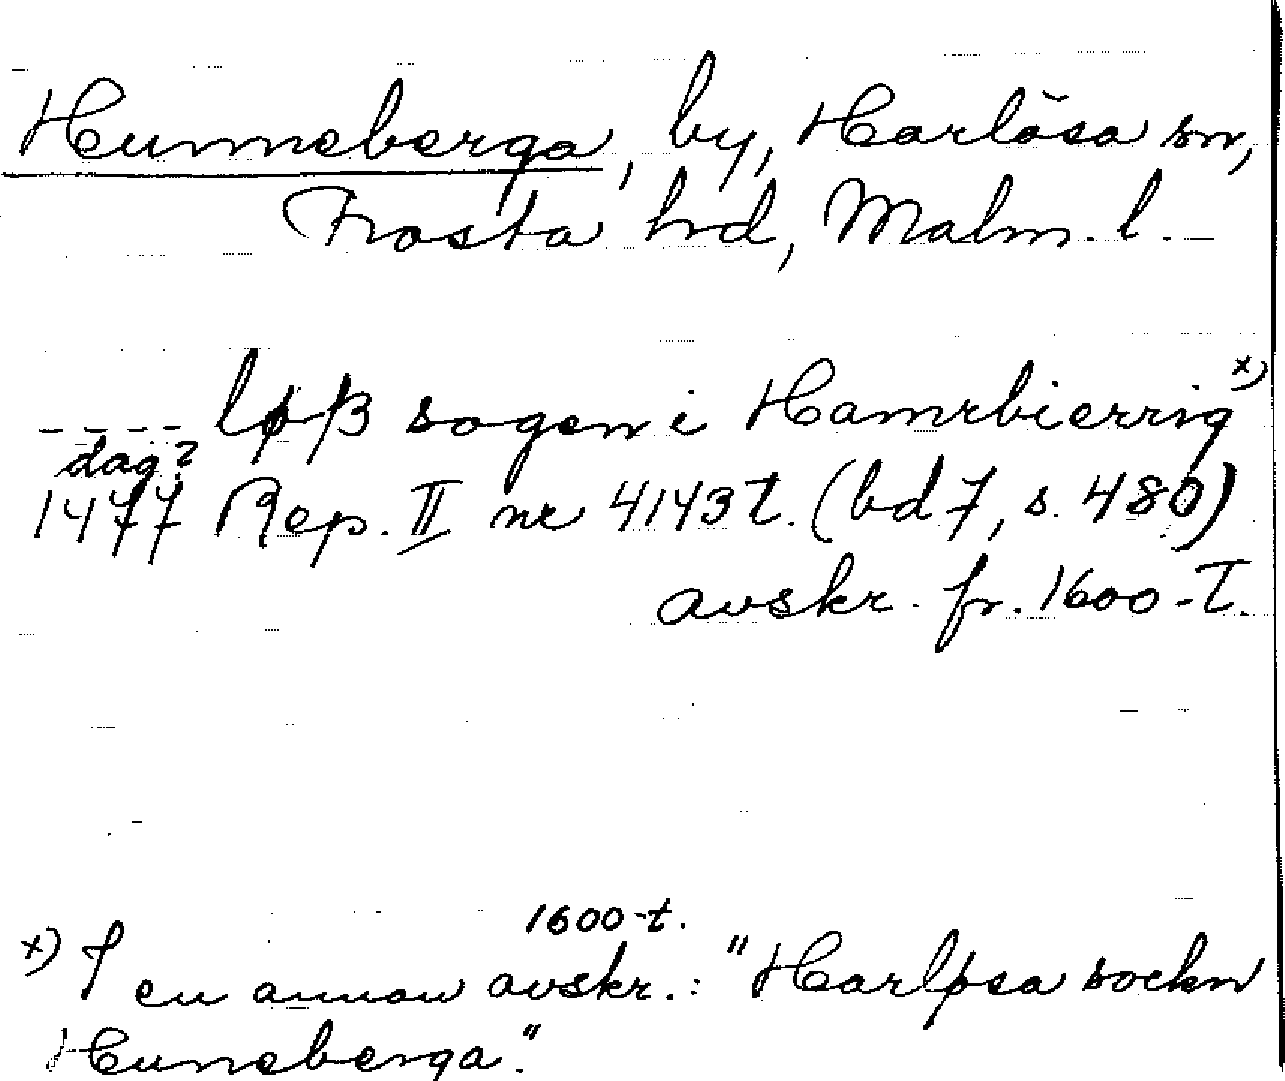 Hunneberga, by, Harlösa sn,
Frosta hd, Malm. l.
---- løß sogen i Hamrbierrig x)
dag?
1477 Rep. II nr 4143 t. (bd 7, s. 480)
avskr. fr. 1600-t.
1600-t.
x) I en annan avskr.: "Harløsa sockn
Huneberga."